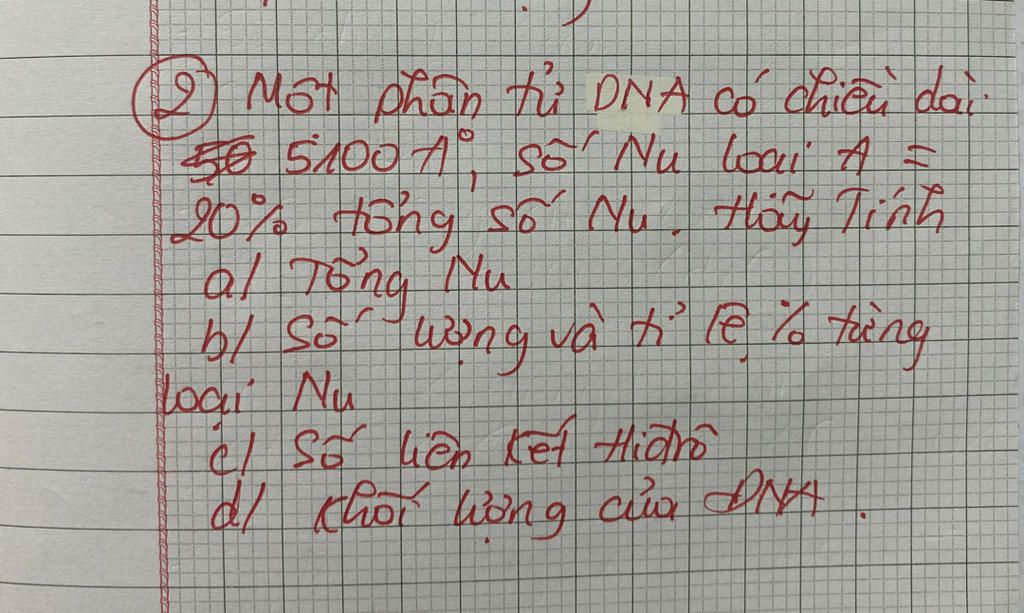 ② Một phân tử DNA có chiều dài
5100 A°, số Nu loại A =
20% tổng số Nu. Hãy Tính
a/ Tổng Nu
b/ Số lượng và tỉ lệ % từng
loại Nu
c/ Số liên kết Hiđrô
d/ Khối lượng của DNA.